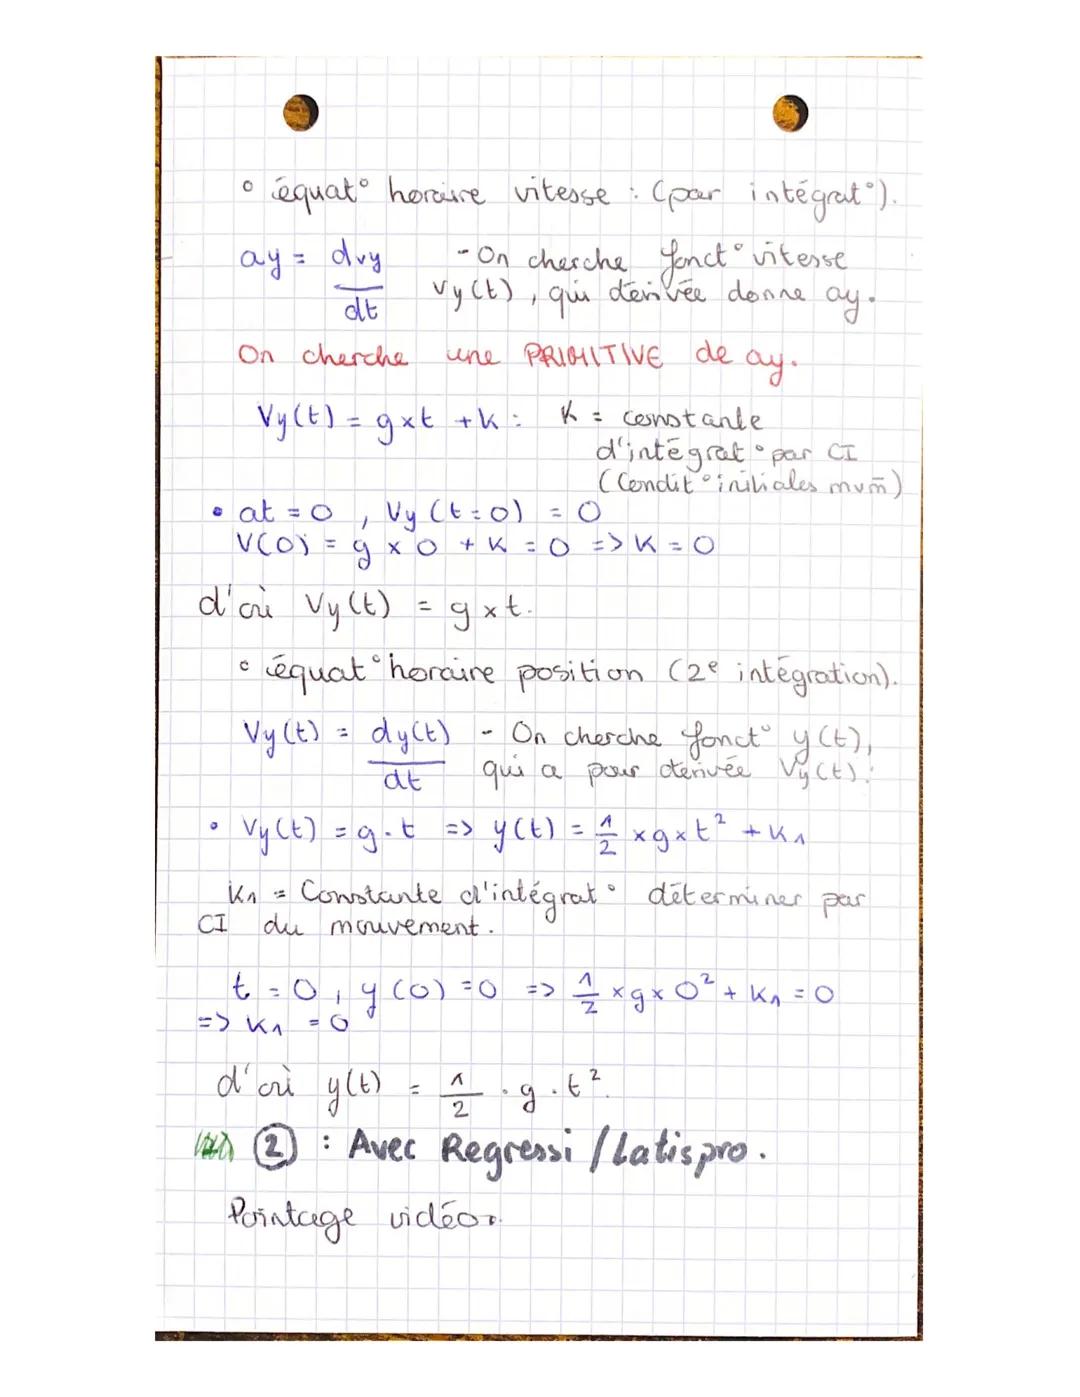 ° équat° horaire vitesse : (par intégrat°).
ay = dvy/dt - On cherche fonct° vitesse
Vy(t), qui dérivée donne ay.
On cherche une PRIMITIVE de ay.
Vy(t) = g×t + K : K = constante
d'intégrat° par CI
(Condit° initiales mvm̄)
• at = 0, Vy (t=0) = 0
V(0) = g × 0 + K = 0 => K = 0
d'où Vy(t) = g × t.
° équat° horaire position (2e intégration).
Vy(t) = dy(t)/dt - On cherche fonct° y(t),
qui a pour dérivée Vy(t).
• Vy(t) = g.t => y(t) = 1/2 × g × t² + K1
K1 = Constante d'intégrat° déterminer par
CI du mouvement.
t = 0, y(0) = 0 => 1/2 × g × 0² + K1 = 0
=> K1 = 0
d'où y(t) = 1/2 . g . t².
② : Avec Regressi / Latispro.
Pointage vidéo.